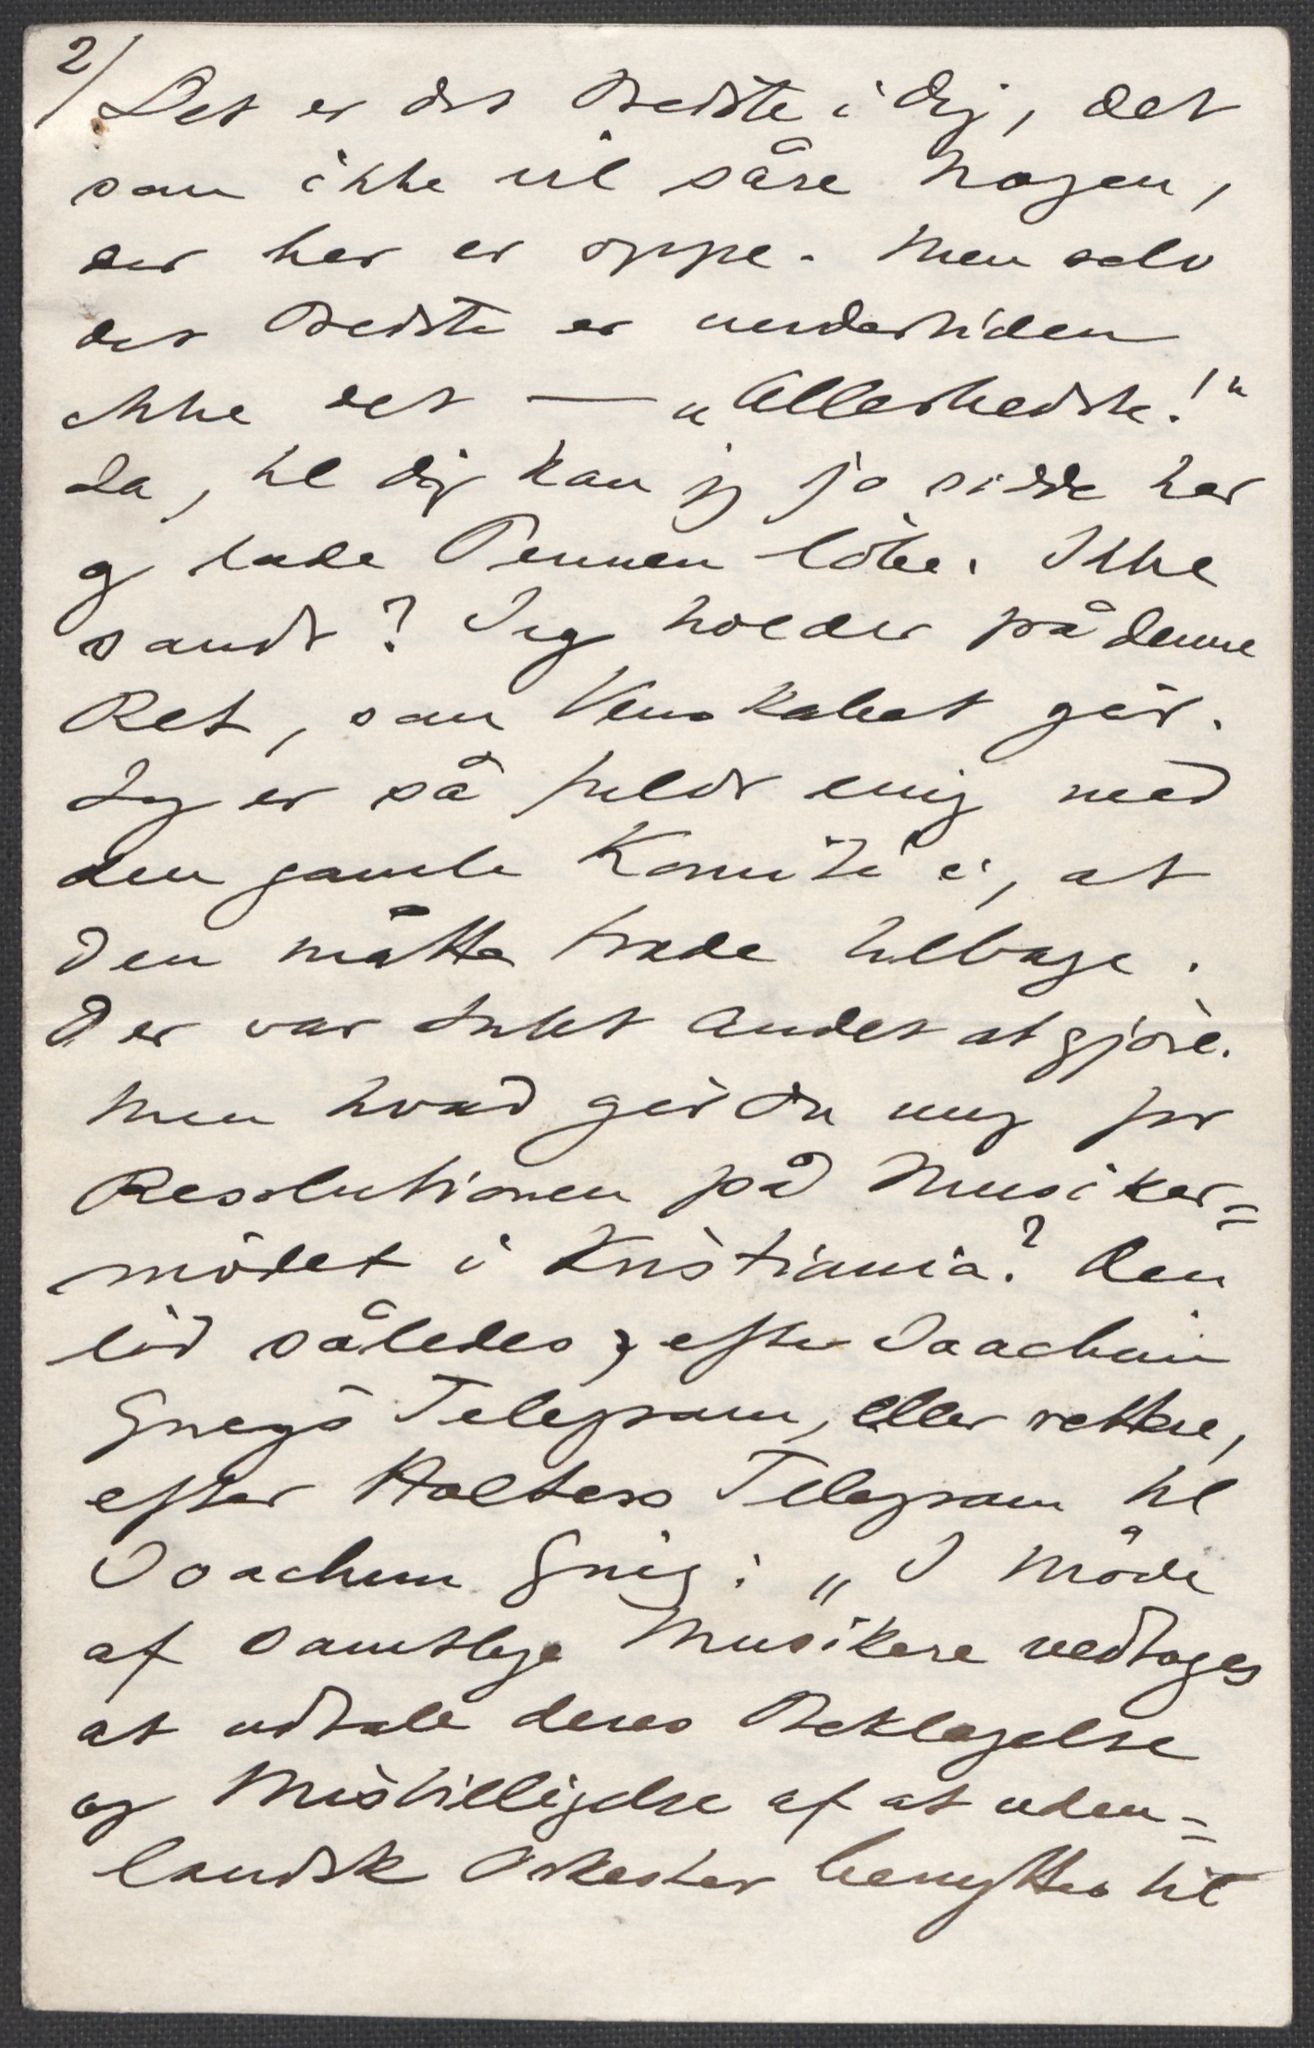 2/
Det er det Bedste i dig, det
som ikke vil såre Nogen,
der her er oppe. Men selv
det Bedste er undertiden
ikke det — „Allerbedste!“
Ja, til dig kan jeg jo sidde her
og lade Pennen löbe. Ikke
sandt? Jeg holder på denne
Ret, som Venskabet gir.
Jeg er så fuldt enig med
den gamle Komité i, at
den måtte træde tilbage.
Der var Intet Andet at gjöre.
Men hvad gir du mig for
Resolutionen på Musiker=
mödet i Kristiania? Den
löd således, efter Joachim
Griegs Telegram, eller rettere,
efter Halters Telegram til
Joachim Grieg: „I Möde
af samtlige Musikere vedtoges
at udtale deres Beklagelse
og Misbilligelse af at uden=
landsk Orkester benyttes til